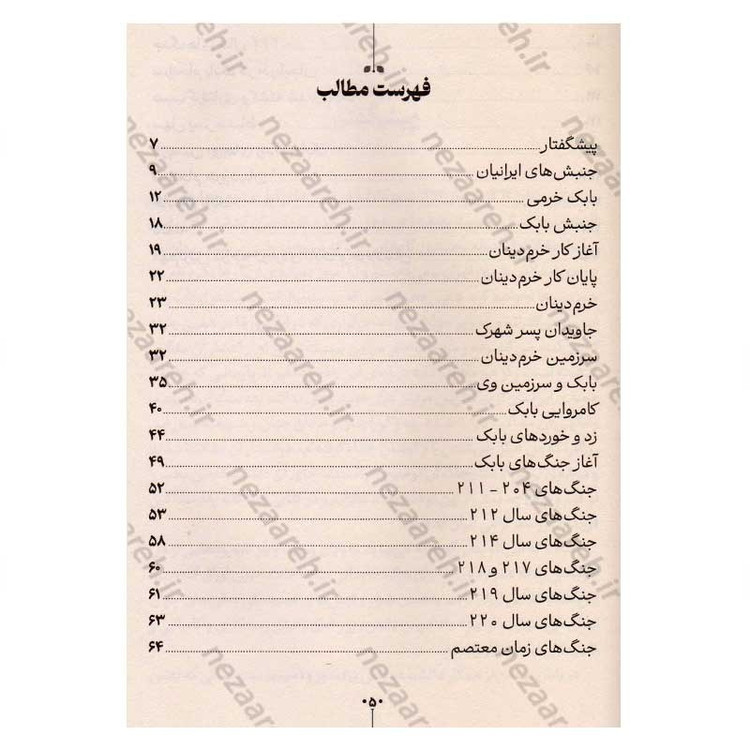 فهرست مطالب
پیشگفتار ۷
جنبش‌های ایرانیان ۹
بابک خرمی ۱۲
جنبش بابک ۱۸
آغاز کار خرم‌دینان ۱۹
پایان کار خرم‌دینان ۲۲
خرم‌دینان ۲۳
جاویدان پسر شهرک ۳۲
سرزمین خرم‌دینان ۳۲
بابک و سرزمین وی ۳۵
کامروایی بابک ۴۰
زد و خوردهای بابک ۴۴
آغاز جنگ‌های بابک ۴۹
جنگ‌های ۲۰۴ - ۲۱۱ ۵۲
جنگ‌های سال ۲۱۲ ۵۳
جنگ‌های سال ۲۱۴ ۵۸
جنگ‌های ۲۱۷ و ۲۱۸ ۶۰
جنگ‌های سال ۲۱۹ ۶۱
جنگ‌های سال ۲۲۰ ۶۳
جنگ‌های زمان معتصم ۶۴
۵
nezaareh.ir